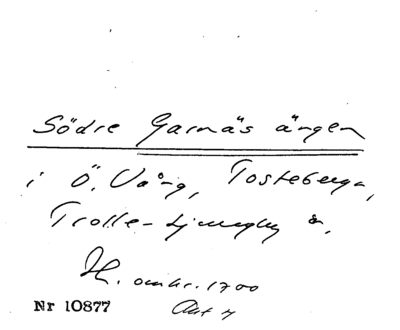 Södre Garnäs ängen
i Ö. Vång, Tosteberga,
Trolle-Ljungby &,
H. omkr. 1700
Nr 10877 Akt 4